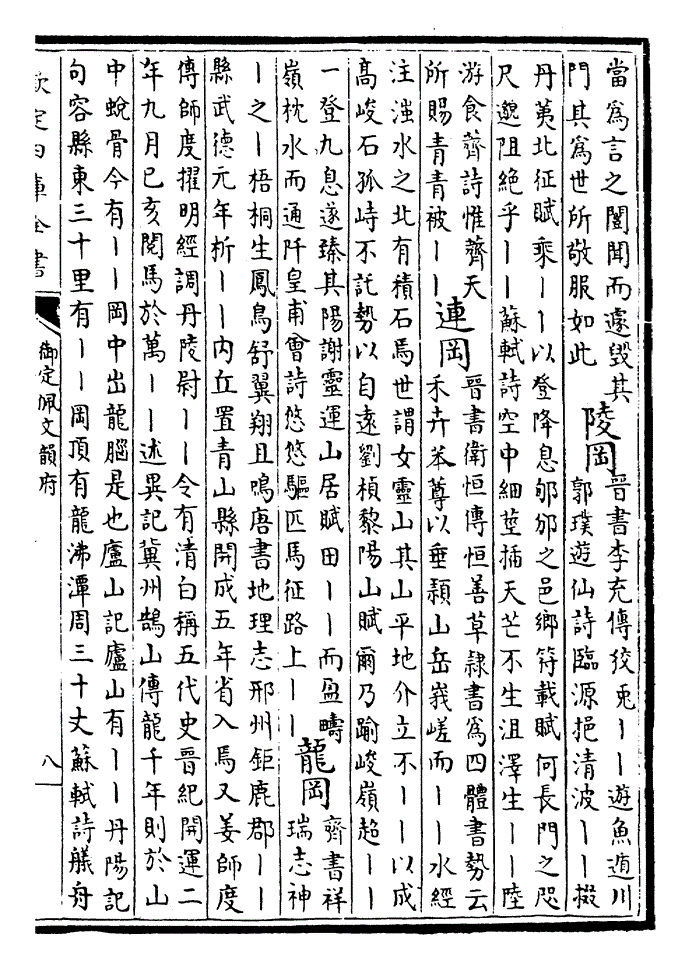 當爲言之闓聞而遽毀其
門其爲世所敬服如此
陵岡
晉書李充傳狡兎丨丨遊魚遁川
郭璞遊仙詩臨源挹清波丨丨掇
丹荑北征賦乘丨丨以登降息郇邠之邑鄉符載賦何長門之咫
尺邈阻絕乎丨丨蘇軾詩空中細莖插天芒不生沮澤生丨丨陸
游食薺詩惟薺天
所賜青青被丨丨
連岡
晉書衛恒傳恒善草隸書爲四體書勢云
禾卉苯䔿以垂頴山岳峩嵯而丨丨水經
注滍水之北有積石焉世謂女靈山其山平地介立不丨丨以成
高峻石孤峙不託勢以自遠劉楨黎陽山賦爾乃踰峻嶺超丨丨
一登九息遂臻其陽謝靈運山居賦田丨丨而盈疇
嶺枕水而通阡皇甫曾詩悠悠驅匹馬征路上丨丨
龍岡
齊書祥
瑞志神
丨之丨梧桐生鳳鳥舒翼翔且鳴唐書地理志邢州鉅鹿郡丨丨
縣武德元年析丨丨内丘置青山縣開成五年省入焉又姜師度
傳師度擢明經調丹陵尉丨丨令有清白稱五代史晉紀開運二
年九月已亥閱馬於萬丨丨述異記冀州鵠山傳龍千年則於山
中蛻骨今有丨丨岡中出龍腦是也廬山記廬山有丨丨丹陽記
句容縣東三十里有丨丨岡頂有龍沸潭周三十丈蘇軾詩艤舟
欽定四庫全書
御定佩文韻府
八